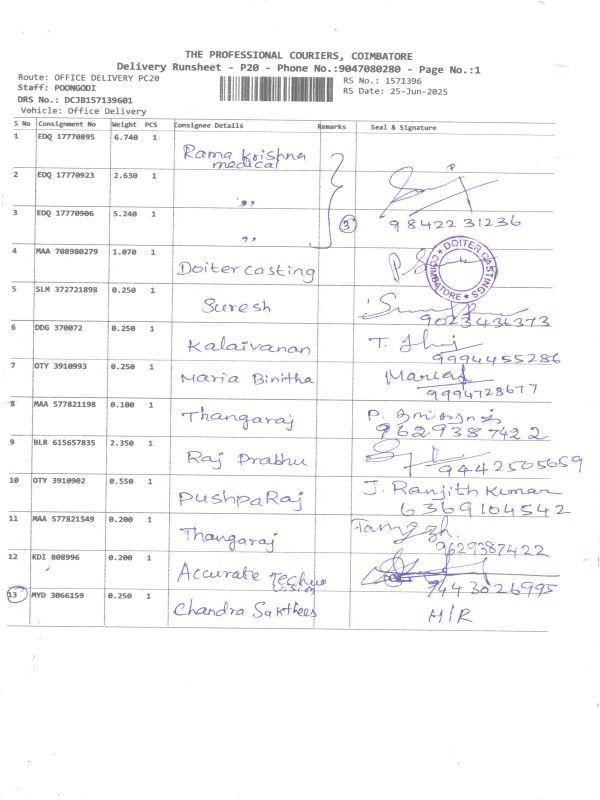 THE PROFESSIONAL COURIERS, COIMBATORE
Delivery Runsheet - P20 - Phone No.:9047080280 - Page No.:1
Route: OFFICE DELIVERY PC20
RS No.: 1571396
Staff: POONGODI
RS Date: 25-Jun-2025
DRS No.: DCJB157139601
Vehicle: Office Delivery
S No Consignment No Weight PCS Consignee Details Remarks Seal & Signature
1 EDQ 17770895 6.740 1 Rama Krishna
medical
2 EDQ 17770923 2.630 1 ,,
3 EDQ 17770906 5.240 1 ,, 3 98422 31236
4 MAA 708980279 1.070 1 Doiter casting DOITER CASTINGS COIMBATORE
5 SLM 372721898 0.250 1 Suresh
9023436373
6 DDG 370072 0.250 1 Kalaivanan
9994455286
7 OTY 3910993 0.250 1 Maria Binitha Maria
9994728677
8 MAA 577821198 0.100 1 Thangaraj
9629387422
9 BLR 615657835 2.350 1 Raj Prabhu
9442505659
10 OTY 3910902 0.550 1 PushpaRaj J. Ranjith Kumar
6369104542
11 MAA 577821549 0.200 1 Thangaraj
9629387422
12 KDI 808996 0.200 1 Accurate Techno
vision
7443026995
13 MYD 3066159 0.250 1 Chandra Sakthees H/R